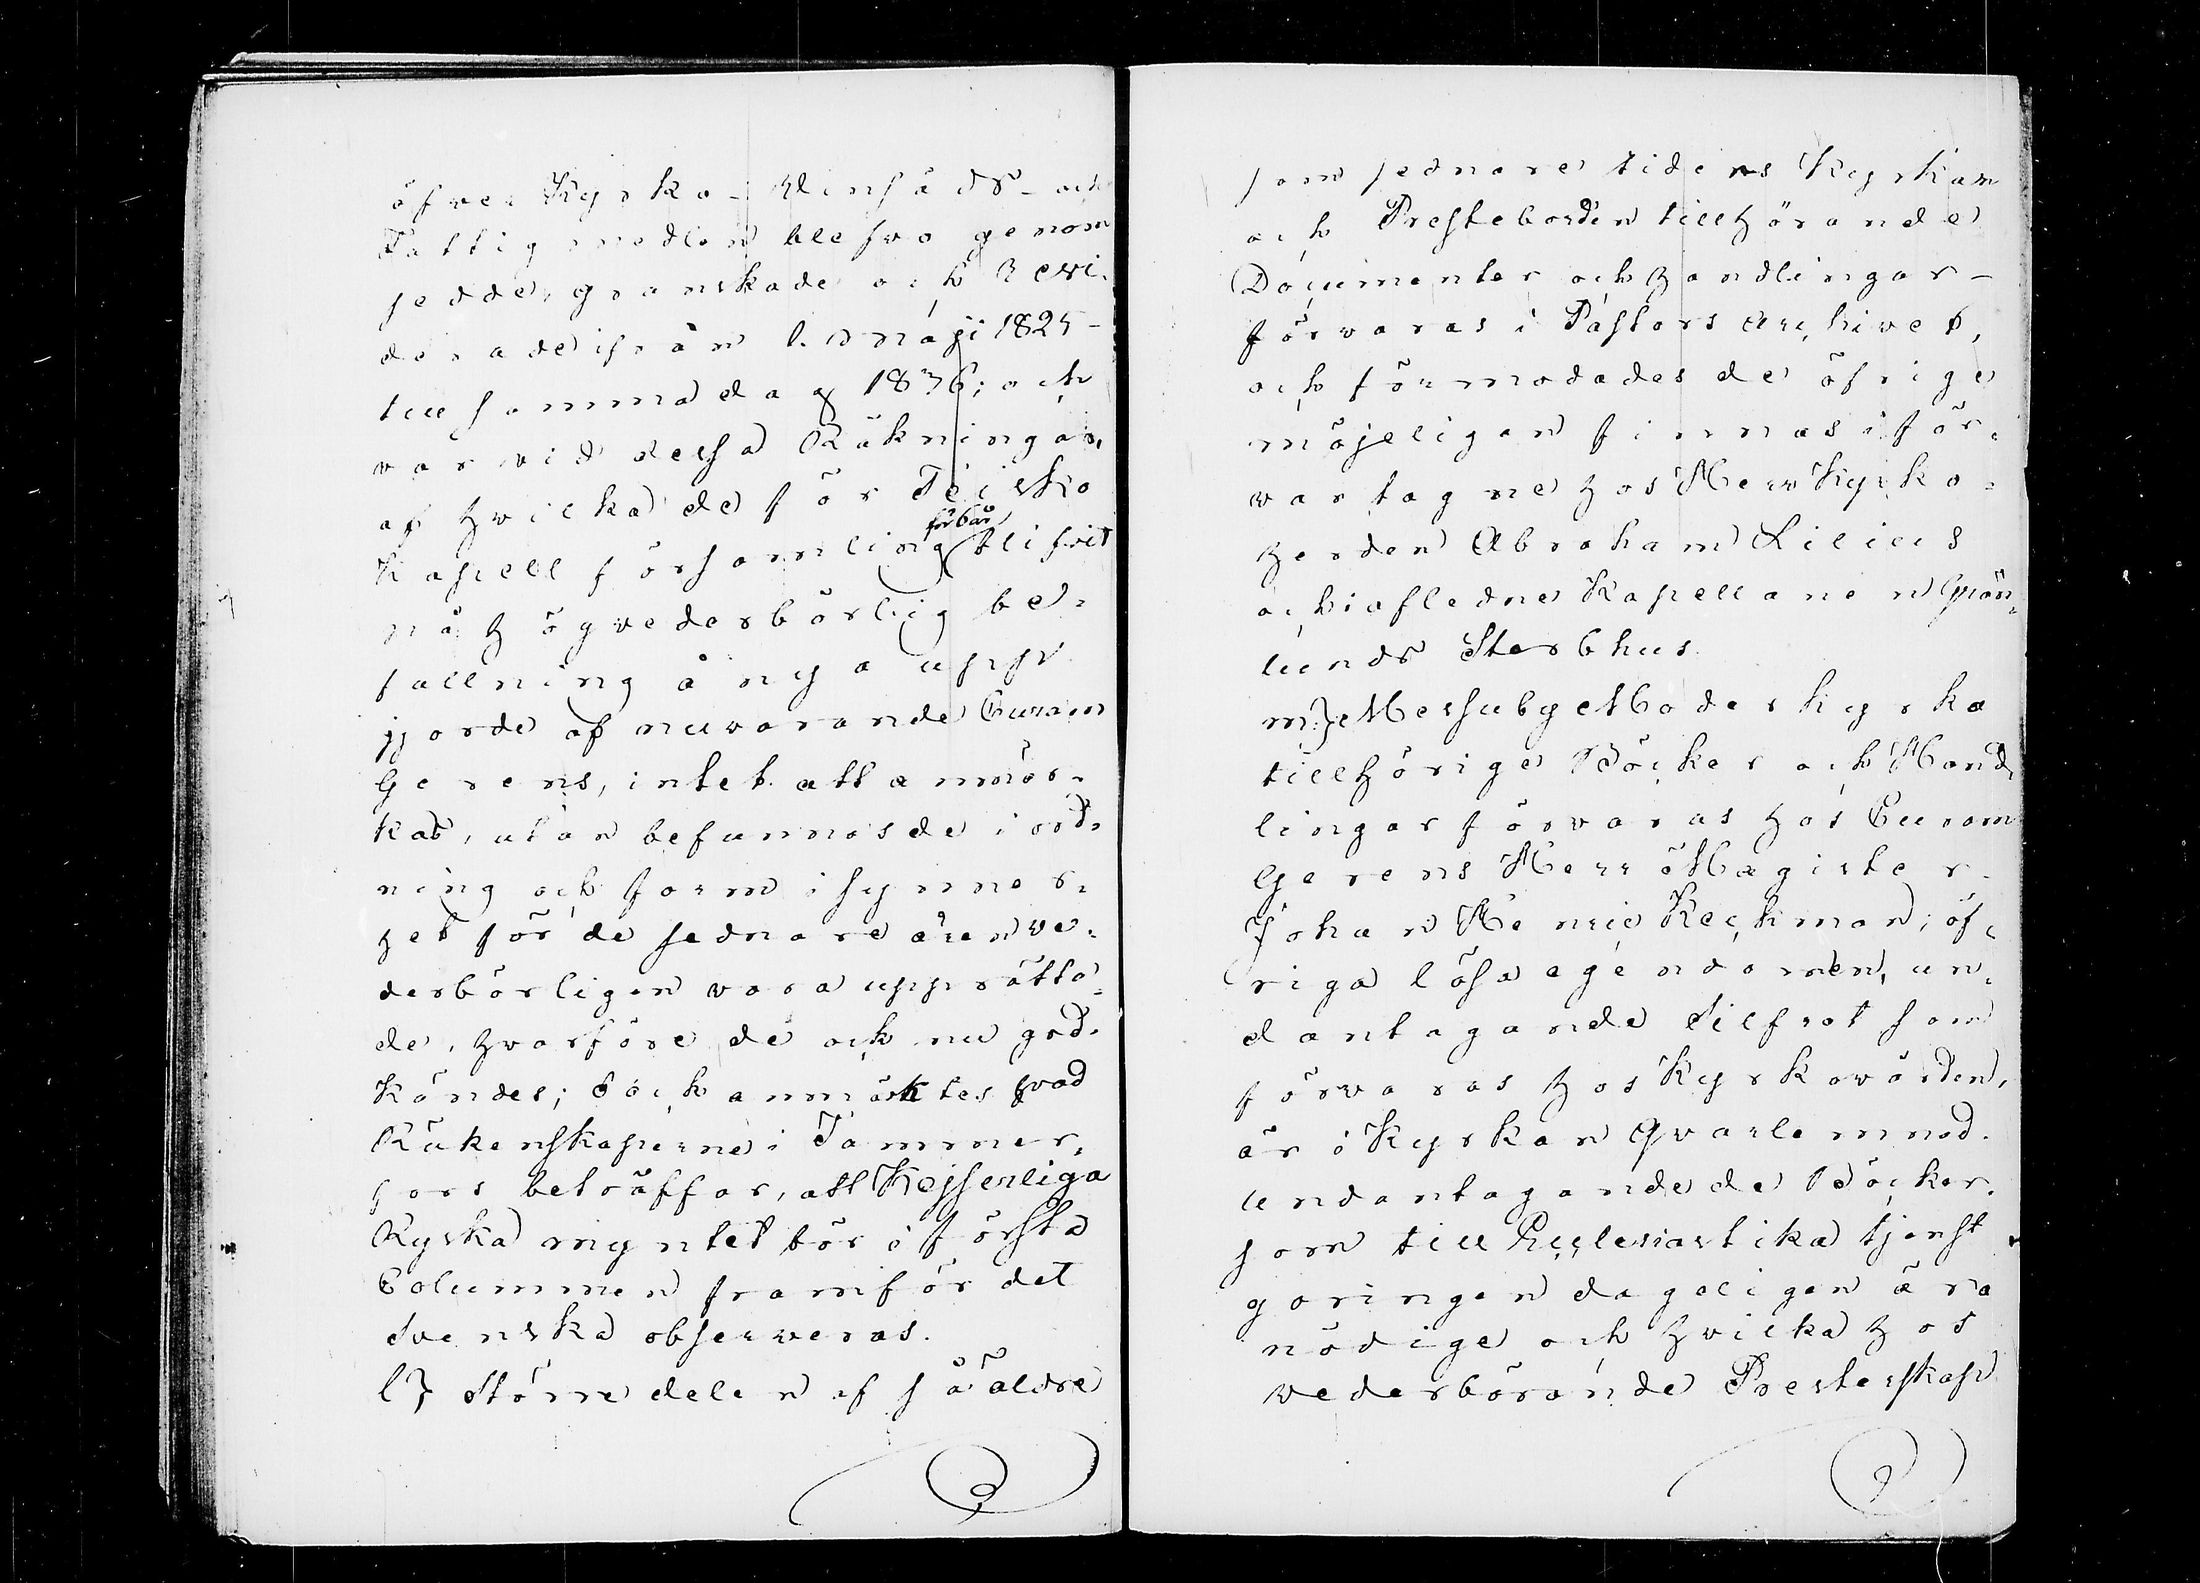 öfver Kyrko- Vinsäds- och
Fattigmedlen blefvo genom
sedde, granskade och Revi-
derade ifrån l. maji 1825-
till samma dag 1836; och
var vid dessa Räkningar,
af hvilka de för Teisko
Kapell församling förbar blifvit
på högvederbörlig be-
fallning å nya upp
gjorde af nuvarande Curam
Gerens, intet att anmär-
kas, utan befunnos de i ord-
ning och form isynner-
het för de sednare åren ve-
derbörligen vara upprätta-
de, hvarföre de ock nu god-
kändes; dock anmärktes hvad
Räkenskaperne i Tammer-
fors beträffar, att Kejserliga
Ryska myntet bör i första
Columnen framför det
Svenska observeras.
l} Större delen af så äldre
som sednare tidens Kyrkan
och Presteborden tillhörande
Documenter och handlingar-
förvaras i Pastors Archivet,
och förmodades de öfrige
möjeligen finnas i för-
var tagne hos Herr Kyrko-
herden Abraham Lilius
och i afledne Kapellanen Grön-
lunds Sterbhus.
m} Messuby Moderkyrka
tillhörige Böcker och Hand-
lingar förvaras hos Curam
Gerens Herr Magister
Johan Henric Keckman; öf-
riga lösa egendomen, un-
dantagande Silfret som
förvaras hos Kyrkovärden,
är i Kyrkan qvarlemnad.
undantagande de Böcker.
som till Ecclesiastika tjenst
göringen dageligen ära
nödige och hvilka hos
vederbörande Presterskap